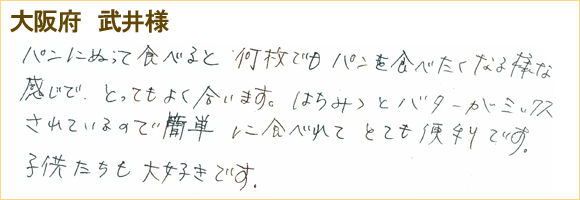 大阪府　武井様
パンにぬって食べると 何枚でもパンを食べたくなる様な
感じで、とってもよく合います。はちみつとバターがミックス
されているので簡単に食べれてとても便利です。
子供たちも大好きです。